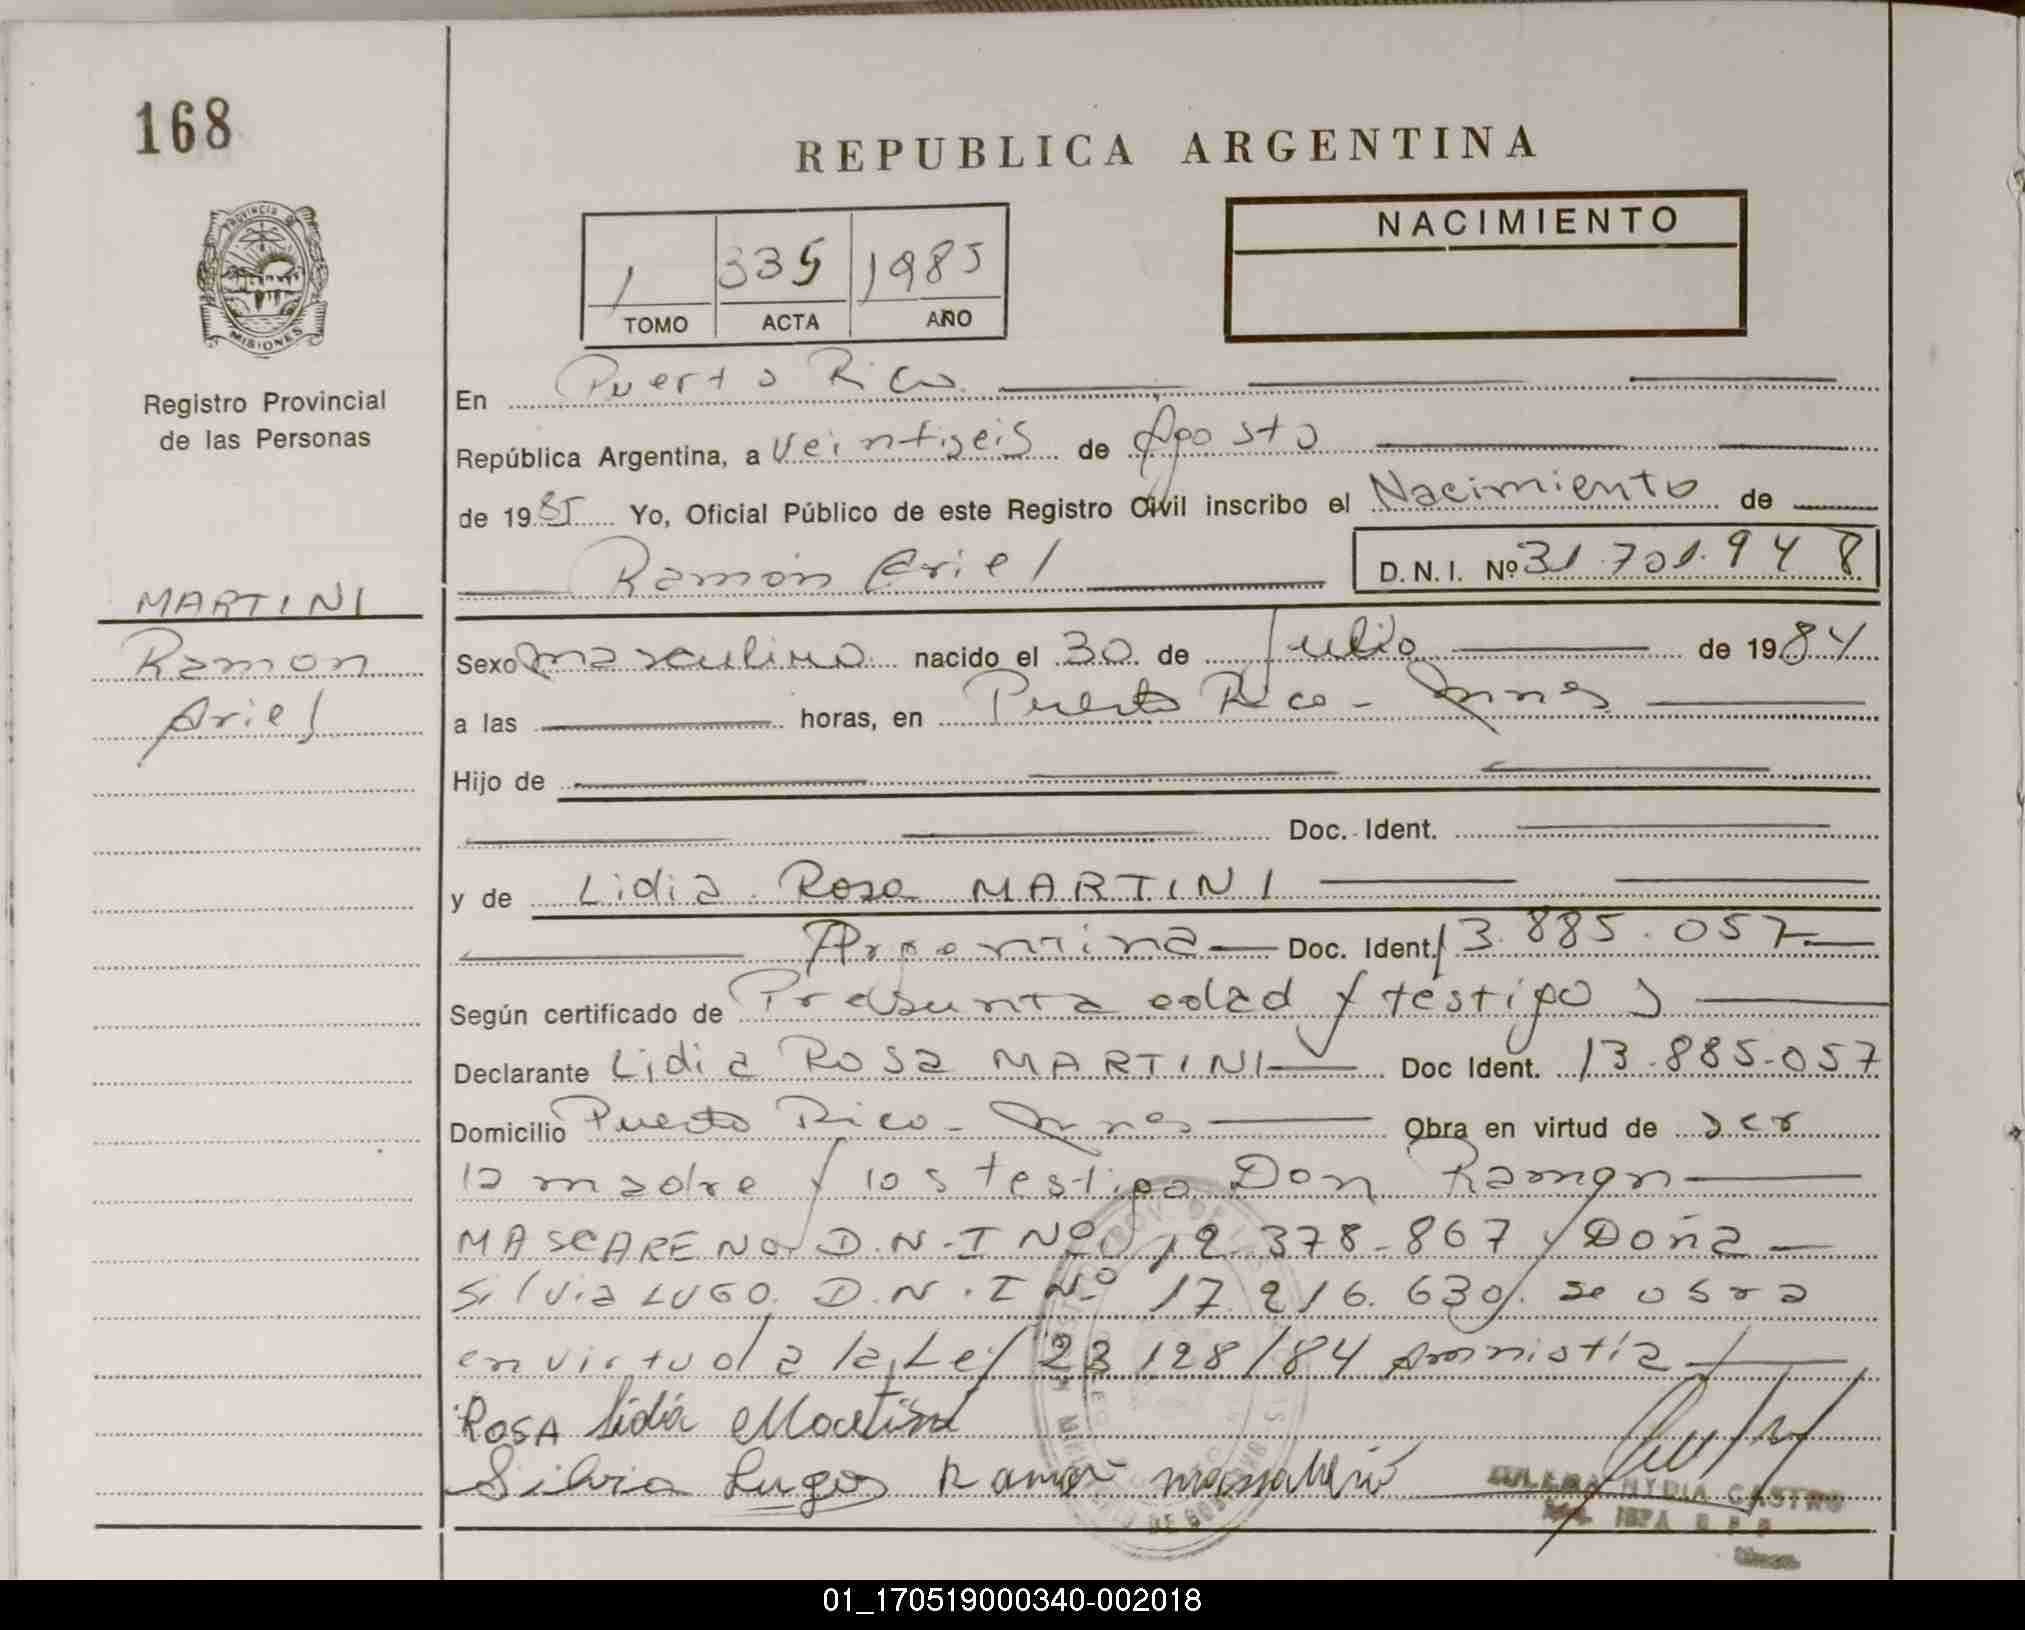 168
REPUBLICA ARGENTINA
NACIMIENTO
1 335 1985
TOMO ACTA AÑO
PROVINCIA DE
MISIONES
Registro Provincial
de las Personas
En Puerto Rico
República Argentina, a Veintiseis de Agosto
de 1985 Yo, Oficial Público de este Registro Civil inscribo el Nacimiento de
Ramon Ariel D.N.I. Nº 31.701.948
MARTINI
Ramon
Ariel
Sexo masculino nacido el 30 de Julio de 1984
a las horas, en Puerto Rico - Mnes
Hijo de
Doc. Ident.
y de Lidia Rosa MARTINI
Argentina Doc. Ident. 13.885.057
Según certificado de Presunta edad y testigos
Declarante Lidia Rosa MARTINI Doc Ident. 13.885.057
Domicilio Puerto Rico - Mnes Obra en virtud de ser
la madre y los testigo Don Ramon
MASCARENO D.N.I Nº 12.378.867 y Doña
Silvia LUGO D.N.I Nº 17.216.630. se obra
en virtud a la Ley 23.128/84 Amnistía
ROSA Lidia Martini
Silvia Lugo Ramon
ZULEMA NYDIA CASTRO
01_170519000340-002018